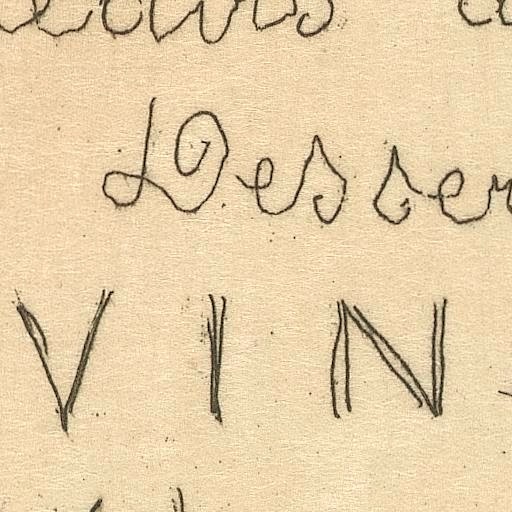 Desser
VIN